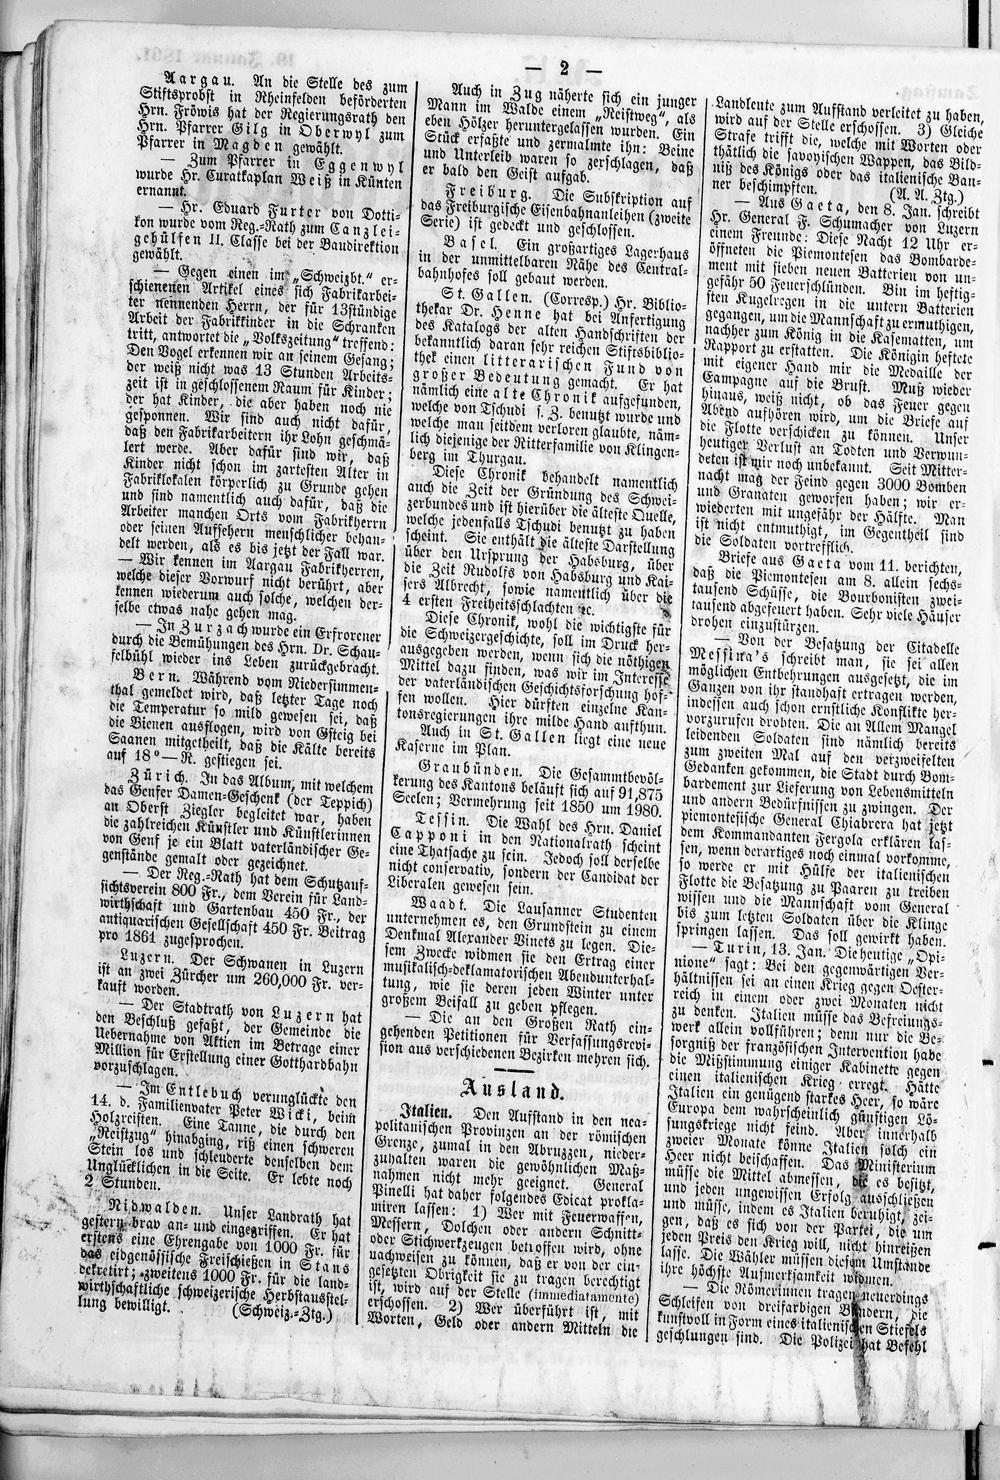 — 2 —
Aargau. An die Stelle des zum
Stiftsprobst in Rheinfelden beförderten
Hrn. Fröwis hat der Regierungsrath den
Hrn. Pfarrer Gilg in Oberwyl zum
Pfarrer in Magden gewählt.
— Zum Pfarrer in Eggenwyl
wurde Hr. Curatkaplan Weiß in Künten
ernannt.
— Hr. Eduard Furter von Dotti-
kon wurde vom Reg.-Rath zum Canzlei-
gehülfen II. Classe bei der Baudirektion
gewählt.
— Gegen einen im „Schweizbt.“ er-
schienenen Artikel eines sich Fabrikarbei-
ter nennenden Herrn, der für 13stündige
Arbeit der Fabrikkinder in die Schranken
tritt, antwortet die „Volkszeitung“ treffend:
Den Vogel erkennen wir an seinem Gesang;
der weiß nicht was 13 Stunden Arbeits-
zeit ist in geschlossenem Raum für Kinder;
der hat Kinder, die aber haben noch nie
gesponnen. Wir sind auch nicht dafür,
daß den Fabrikarbeitern ihr Lohn geschmä-
lert werde. Aber dafür sind wir, daß
Kinder nicht schon im zartesten Alter in
Fabriklokalen körperlich zu Grunde gehen
und sind namentlich auch dafür, daß die
Arbeiter manchen Orts vom Fabrikherrn
oder seinen Aufsehern menschlicher behan-
delt werden, als es bis jetzt der Fall war.
— Wir kennen im Aargau Fabrikherren,
welche dieser Vorwurf nicht berührt, aber
kennen wiederum auch solche, welchen der-
selbe etwas nahe gehen mag.
— In Zurzach wurde ein Erfrorener
durch die Bemühungen des Hrn. Dr. Schau-
felbühl wieder ins Leben zurückgebracht.
Bern. Während vom Niedersimmen-
thal gemeldet wird, daß letzter Tage noch
die Temperatur so mild gewesen sei, daß
die Bienen ausflogen, wird von Gsteig bei
Saanen mitgetheilt, daß die Kälte bereits
auf 18° — R. gestiegen sei.
Zürich. In das Album, mit welchem
das Genfer Damen-Geschenk (der Teppich)
an Oberst Ziegler begleitet war, haben
die zahlreichen Künstler und Künstlerinnen
von Genf je ein Blatt vaterländischer Ge-
genstände gemalt oder gezeichnet.
— Der Reg.-Rath hat dem Schutzauf-
sichtsverein 800 Fr., dem Verein für Land-
wirthschaft und Gartenbau 450 Fr., der
antiquarischen Gesellschaft 450 Fr. Beitrag
pro 1861 zugesprochen.
Luzern. Der Schwanen in Luzern
ist an zwei Zürcher um 260,000 Fr. ver-
kauft worden.
— Der Stadtrath von Luzern hat
den Beschluß gefaßt, der Gemeinde die
Uebernahme von Aktien im Betrage einer
Million für Erstellung einer Gotthardbahn
vorzuschlagen.
— Im Entlebuch verunglückte den
14. d. Familienvater Peter Wicki, beim
Holzreisten. Eine Tanne, die durch den
„Reistzug“ hinabging, riß einen schweren
Stein los und schleuderte denselben dem
Unglücklichen in die Seite. Er lebte noch
2 Stunden.
Nidwalden. Unser Landrath hat
gestern brav an- und eingegriffen. Er hat
erstens eine Ehrengabe von 1000 Fr. für
das eidgenössische Freischießen in Stans
dekretirt; zweitens 1000 Fr. für die land-
wirthschaftliche schweizerische Herbstausstel-
lung bewilligt. (Schweiz.-Ztg.)
Auch in Zug näherte sich ein junger
Mann im Walde einem „Reistweg“, als
eben Hölzer heruntergelassen wurden. Ein
Stück erfaßte und zermalmte ihn: Beine
und Unterleib waren so zerschlagen, daß
er bald den Geist aufgab.
Freiburg. Die Subskription auf
das Freiburgische Eisenbahnanleihen (zweite
Serie) ist gedeckt und geschlossen.
Basel. Ein großartiges Lagerhaus
in der unmittelbaren Nähe des Central-
bahnhofes soll gebaut werden.
St. Gallen. (Corresp.) Hr. Biblio-
thekar Dr. Henne hat bei Anfertigung
des Katalogs der alten Handschriften der
bekanntlich daran sehr reichen Stiftsbiblio-
thek einen litterarischen Fund von
großer Bedeutung gemacht. Er hat
nämlich eine alte Chronik aufgefunden,
welche von Tschudi s. Z. benutzt wurde und
welche man seitdem verloren glaubte, näm-
lich diejenige der Ritterfamilie von Klingen-
berg im Thurgau.
Diese Chronik behandelt namentlich
auch die Zeit der Gründung des Schwei-
zerbundes und ist hierüber die älteste Quelle,
welche jedenfalls Tschudi benutzt zu haben
scheint. Sie enthält die älteste Darstellung
über den Ursprung der Habsburg, über
die Zeit Rudolfs von Habsburg und Kai-
sers Albrecht, sowie namentlich über die
4 ersten Freiheitsschlachten ec.
Diese Chronik, wohl die wichtigste für
die Schweizergeschichte, soll im Druck her-
ausgegeben werden, wenn sich die nöthigen
Mittel dazu finden, was wir im Interesse
der vaterländischen Geschichtsforschung hof-
fen wollen. Hier dürften einzelne Kan-
tonsregierungen ihre milde Hand aufthun.
Auch in St. Gallen liegt eine neue
Kaserne im Plan.
Graubünden. Die Gesammtbevöl-
kerung des Kantons beläuft sich auf 91,875
Seelen; Vermehrung seit 1850 um 1980.
Tessin. Die Wahl des Hrn. Daniel
Capponi in den Nationalrath scheint
eine Thatsache zu sein. Jedoch soll derselbe
nicht conservativ, sondern der Candidat der
Liberalen gewesen sein.
Waadt. Die Lausanner Studenten
unternehmen es, den Grundstein zu einem
Denkmal Alexander Vinets zu legen. Die-
sem Zwecke widmen sie den Ertrag einer
musikalisch-deklamatorischen Abendunterhal-
tung, wie sie deren jeden Winter unter
großem Beifall zu geben pflegen.
— Die an den Großen Rath ein-
gehenden Petitionen für Verfassungsrevi-
sion aus verschiedenen Bezirken mehren sich.
Ausland.
Italien. Den Aufstand in den nea-
politanischen Provinzen an der römischen
Grenze, zumal in den Abruzzen, nieder-
zuhalten waren die gewöhnlichen Maß-
nahmen nicht mehr geeignet. General
Pinelli hat daher folgendes Edicat prokla-
miren lassen: 1) Wer mit Feuerwaffen,
Messern, Dolchen oder andern Schnitt-
oder Stichwerkzeugen betroffen wird, ohne
nachweisen zu können, daß er von der ein-
gesetzten Obrigkeit sie zu tragen berechtigt
ist, wird auf der Stelle (immediatamente)
erschossen. 2) Wer überführt ist, mit
Worten, Geld oder andern Mitteln die
Landleute zum Aufstand verleitet zu haben,
wird auf der Stelle erschossen. 3) Gleiche
Strafe trifft die, welche mit Worten oder
thätlich die savoyischen Wappen, das Bild-
niß des Königs oder das italienische Ban-
ner beschimpften. (A. A. Ztg.)
— Aus Gaeta, den 8. Jan. schreibt
Hr. General F. Schumacher von Luzern
einem Freunde: Diese Nacht 12 Uhr er-
öffneten die Piemontesen das Bombarde-
ment mit sieben neuen Batterien von un-
gefähr 50 Feuerschlünden. Bin im heftig-
sten Kugelregen in die untern Batterien
gegangen, um die Mannschaft zu ermuthigen,
nachher zum König in die Kasematten, um
Rapport zu erstatten. Die Königin heftete
mit eigener Hand mir die Medaille der
Campagne auf die Brust. Muß wieder
hinaus, weiß nicht, ob das Feuer gegen
Abend aufhören wird, um die Briefe auf
die Flotte verschicken zu können. Unser
heutiger Verlust an Todten und Verwun-
deten ist mir noch unbekannt. Seit Mitter-
nacht mag der Feind gegen 3000 Bomben
und Granaten geworfen haben; wir er-
wiederten mit ungefähr der Hälfte. Man
ist nicht entmuthigt, im Gegentheil sind
die Soldaten vortrefflich.
Briefe aus Gaeta vom 11. berichten,
daß die Piemontesen am 8. allein sechs-
tausend Schüsse, die Bourbonisten zwei-
tausend abgefeuert haben. Sehr viele Häuser
drohen einzustürzen.
— Von der Besatzung der Citadelle
Messina's schreibt man, sie sei allen
möglichen Entbehrungen ausgesetzt, die im
Ganzen von ihr standhaft ertragen werden,
indessen auch schon ernstliche Konflikte her-
vorzurufen drohten. Die an Allem Mangel
leidenden Soldaten sind nämlich bereits
zum zweiten Mal auf den verzweifelten
Gedanken gekommen, die Stadt durch Bom-
bardement zur Lieferung von Lebensmitteln
und andern Bedürfnissen zu zwingen. Der
piemontesische General Chiabrera hat jetzt
dem Kommandanten Fergola erklären las-
sen, wenn derartiges noch einmal vorkomme,
so werde er mit Hülfe der italienischen
Flotte die Besatzung zu Paaren zu treiben
wissen und die Mannschaft vom General
bis zum letzten Soldaten über die Klinge
springen lassen. Das soll gewirkt haben.
— Turin, 13. Jan. Die heutige „Opi-
nione“ sagt: Bei den gegenwärtigen Ver-
hältnissen sei an einen Krieg gegen Oester-
reich in einem oder zwei Monaten nicht
zu denken. Italien müsse das Befreiungs-
werk allein vollführen; denn nur die Be-
sorgniß der französischen Intervention habe
die Mißstimmung einiger Kabinette gegen
einen italienischen Krieg erregt. Hätte
Italien ein genügend starkes Heer, so wäre
Europa dem wahrscheinlich günstigen Lö-
sungskriege nicht feind. Aber innerhalb
zweier Monate könne Italien solch ein
Heer nicht beischaffen. Das Ministerium
müsse die Mittel abmessen, die es besitzt,
und jeden ungewissen Erfolg ausschließen
und müsse, indem es Italien beruhigt, zei-
gen, daß es sich von der Partei, die um
jeden Preis den Krieg will, nicht hinreißen
lasse. Die Wähler müssen diesem Umstande
ihre höchste Aufmerksamkeit widmen.
— Die Römerinnen tragen neuerdings
Schleifen von dreifarbigen Bändern, die
kunstvoll in Form eines italienischen Stiefels
geschlungen sind. Die Polizei hat Befehl